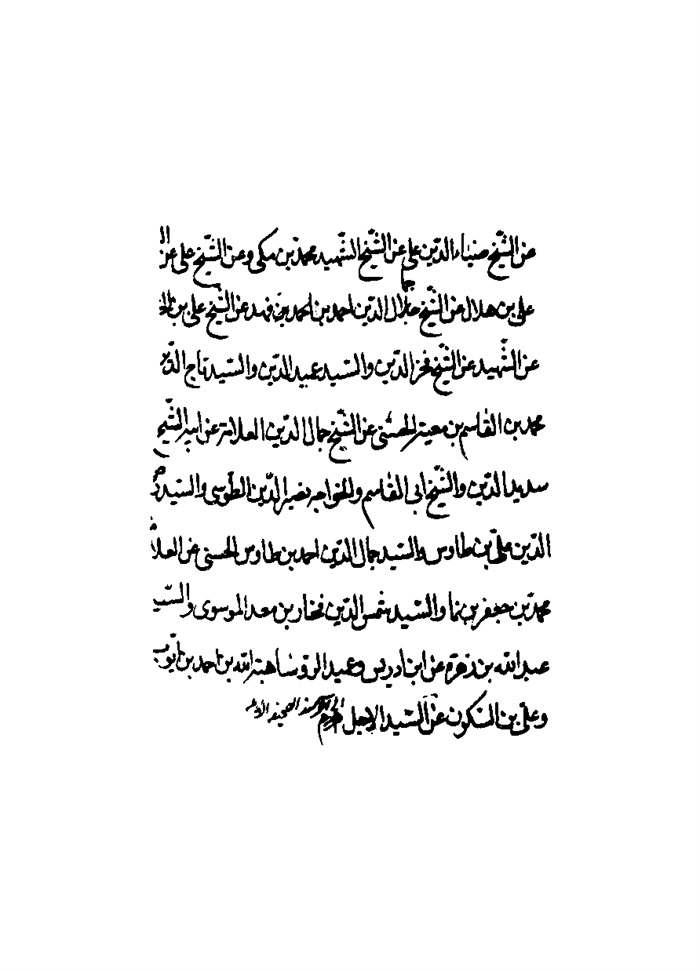 عن الشيخ ضياء الدين علي عن الشيخ الشهيد محمد بن مكي وعن الشيخ علي عن
علي بن هلال عن الشيخ جمال الدين احمد بن فهد عن الشيخ علي بن
عن الشهيد عن الشيخ فخر الدين والسيد عميد الدين والسيد تاج الدين
محمد بن القاسم بن معية الحسنى عن الشيخ جمال الدين العلامة عن ابيه الشيخ
سديد الدين والشيخ ابى القاسم والخواجه نصير الدين الطوسى والسيد
الدين على بن طاوس والسيد جمال الدين احمد بن طاوس الحسنى عن
محمد بن جعفر بن نما والسيد شمس الدين فخار بن معد الموسوى والسيد
عبد الله بن زهرة عن ابن ادريس وعميد الروساء هبة الله بن احمد بن ايوب
وعلى بن السكون عن السيد الاجل الى آخر سند الصحيفة